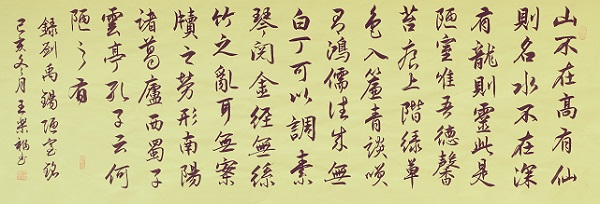 山不在高有仙
則名水不在深
有龍則靈此是
陋室惟吾德馨
苔痕上階綠草
色入簾青談咲
有鴻儒往來無
白丁可以調素
琴閱金經無絲
竹之亂耳無案
牘之勞形南陽
諸葛廬西蜀子
雲亭孔子云何
陋之有
錄劉禹錫陋室銘
己亥冬月王榮